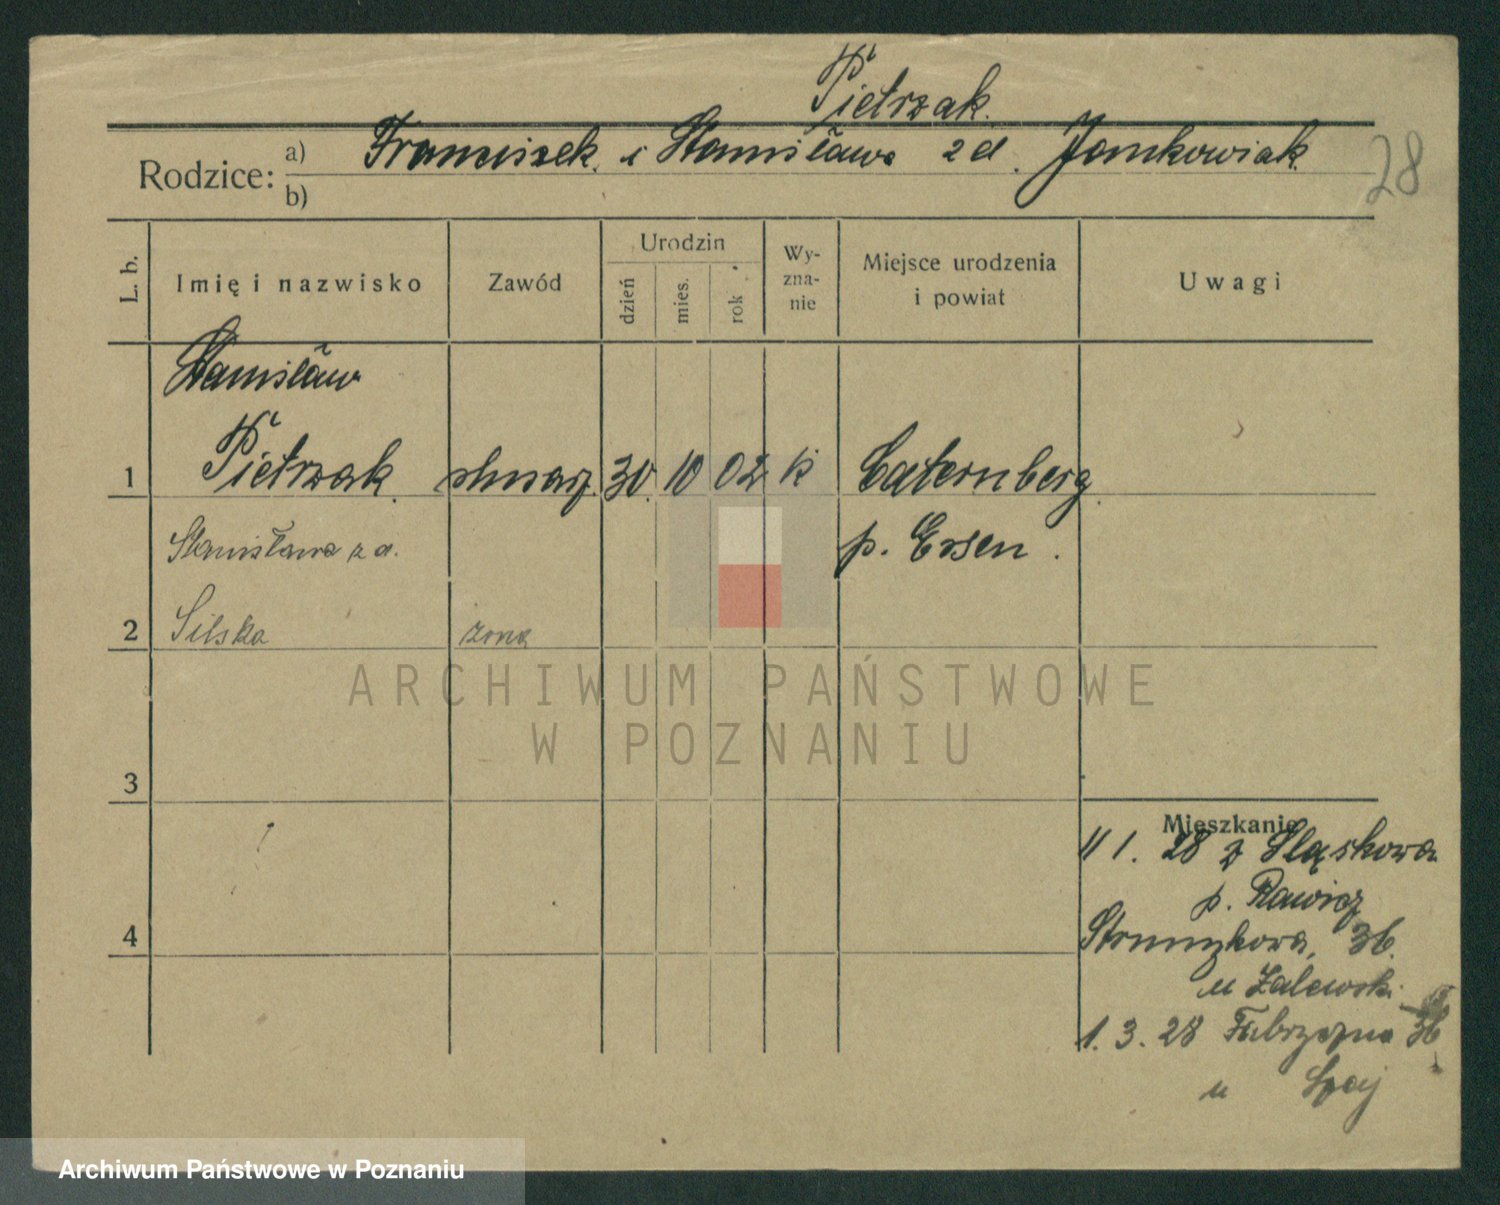 Pietrzak.
Rodzice: a) Franciszek i Stanisława z d. Jankowiak
b)
28
L. b.
Imię i nazwisko
Zawód
Urodzin
dzień
mies.
rok
Wy-
zna-
nie
Miejsce urodzenia
i powiat
Uwagi
Stanisław
1 Pietrzak ślusarz. 30. 10 02 k Caternberg.
p. Essen.
Stanisława z d.
2 Silska żona
3
4
ARCHIWUM PAŃSTWOWE
W POZNANIU
Mieszkanie
11 1. 28 z Sląskowa
p. Rawicz
Strumykowa, 36.
u Zalewski.
1. 3. 28 Fabryczna 36
u
Archiwum Państwowe w Poznaniu